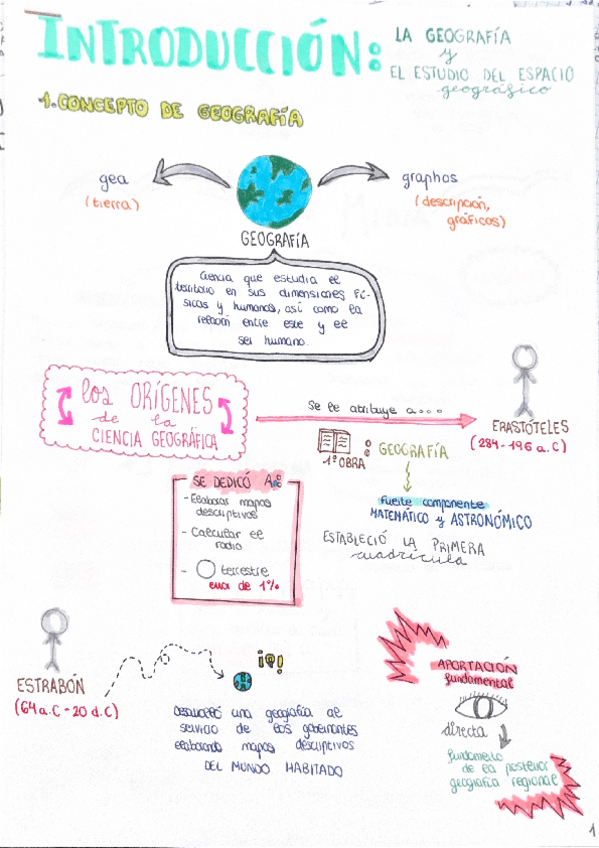 INTRODUCCIÓN:
LA GEOGRAFÍA
y
EL ESTUDIO DEL ESPACIO
geográfico
1. CONCEPTO DE GEOGRAFÍA
gea
(tierra)
graphos
(descripción,
gráficos)
GEOGRAFÍA
Ciencia que estudia el
territorio en sus dimensiones fí-
sicas y humanas, así como la
relación entre este y el
ser humano.
los ORÍGENES
de la
CIENCIA GEOGRÁFICA
Se le atribuye a...
ERASTÓTELES
(284-196 a.C)
1ª OBRA
: GEOGRAFÍA
fuerte componente
MATEMÁTICO y ASTRONÓMICO
ESTABLECIÓ LA PRIMERA
cuadrícula
SE DEDICÓ A:
- Elaborar mapas
descriptivos
- Calcular el
radio
- terrestre
error de 1%
ESTRABÓN
(64 a.C - 20 d.C)
¡!
Desarrolló una geografía al
servicio de los gobernantes
elaborando mapas descriptivos
DEL MUNDO HABITADO
APORTACIÓN
fundamental
directa
fundamento
de la posterior
geografía regional
1